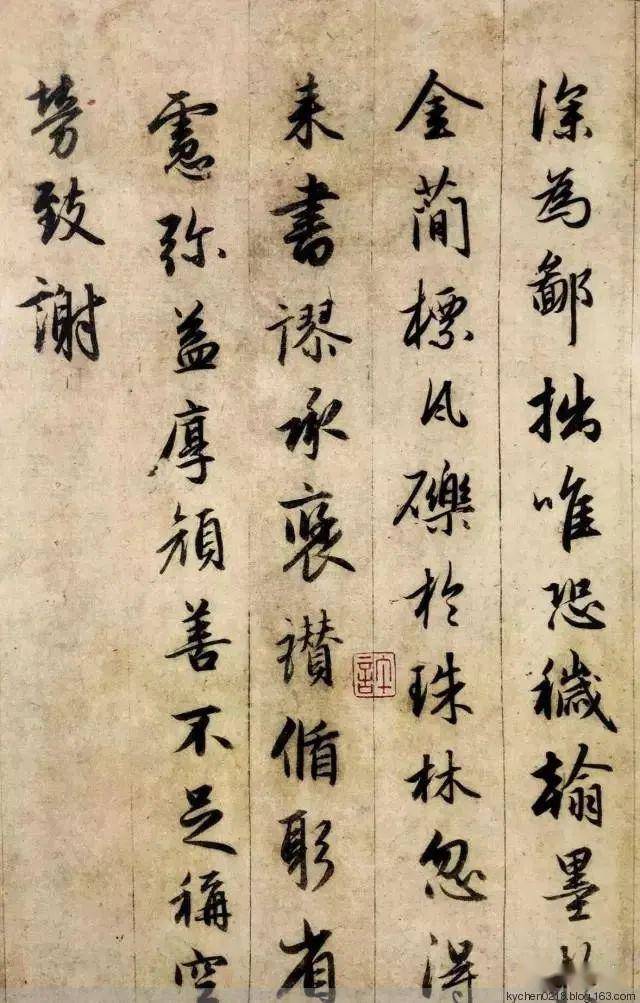 深為鄙拙唯恐穢翰墨
金蕳標瓦礫於珠林忽得
来書謬承褒讃偱躬省
慮弥益厚顔善不足稱空
勞致謝
kychen0218.blog.163.com